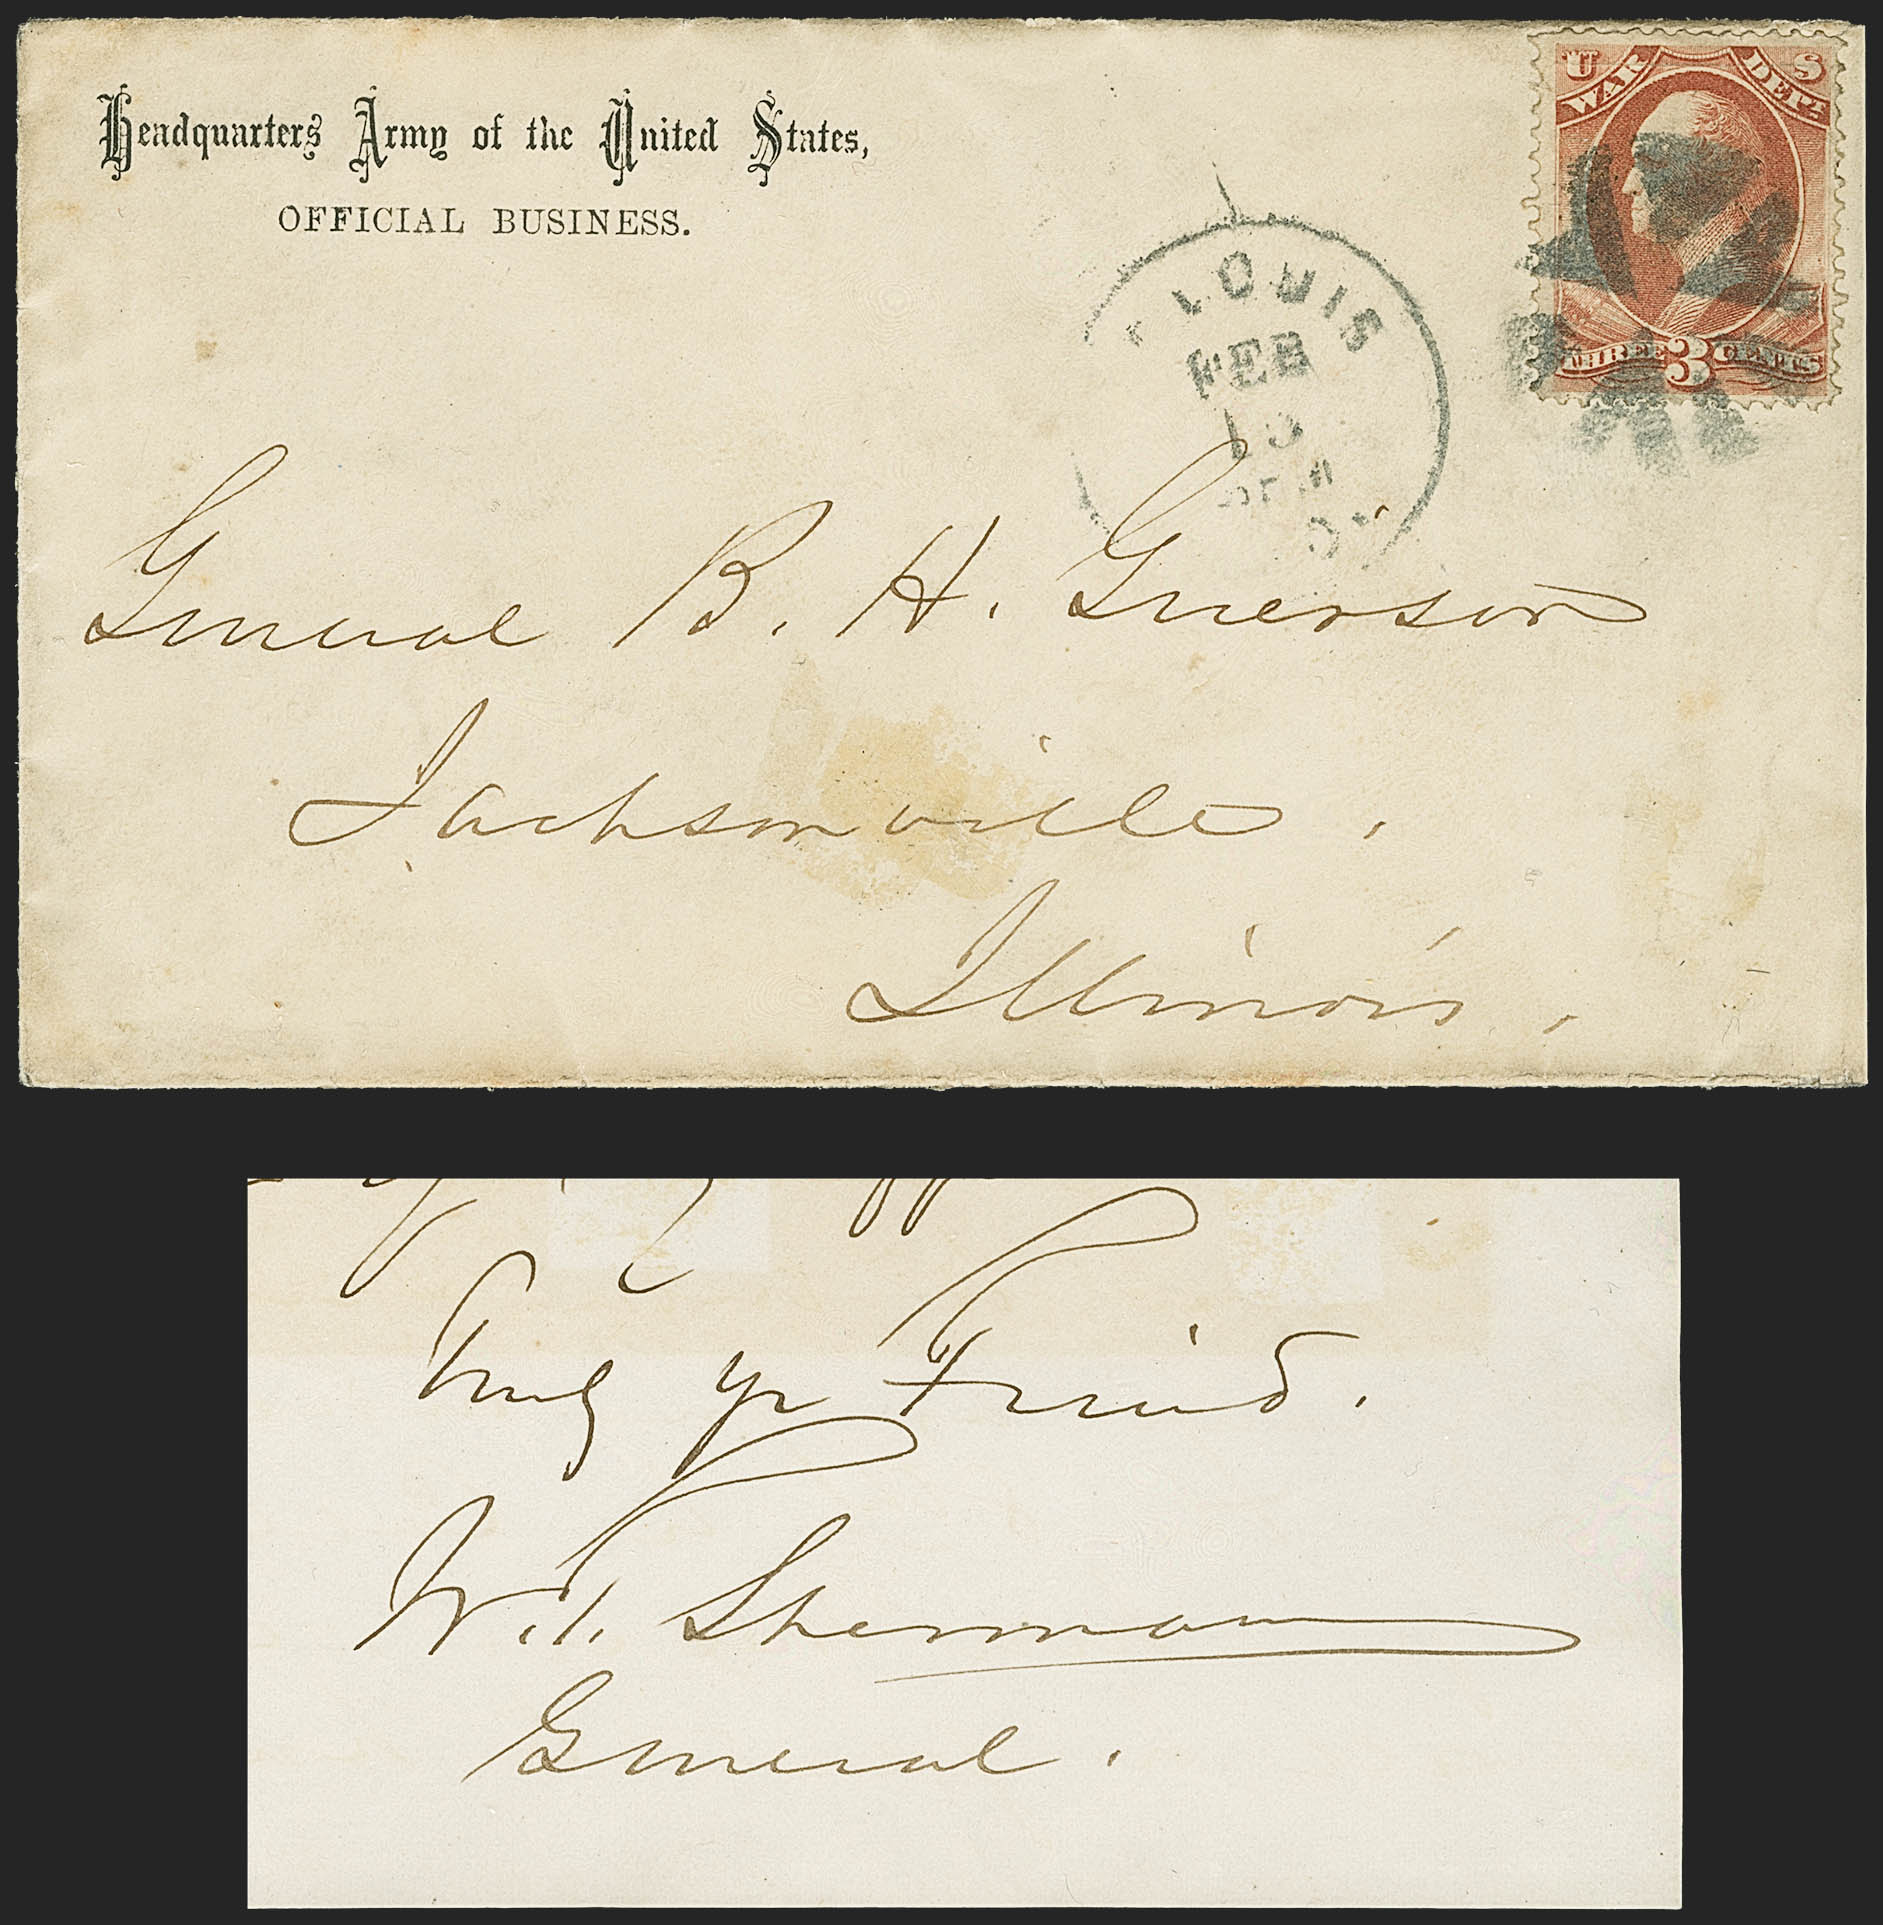 Headquarters Army of the United States,
OFFICIAL BUSINESS.
U S
WAR DEPT.
THREE 3 CENTS
LOUIS
FEB
General B. H. Grierson
Jacksonville.
Illinois.
Truly yr Friend.
W. T. Sherman
General.